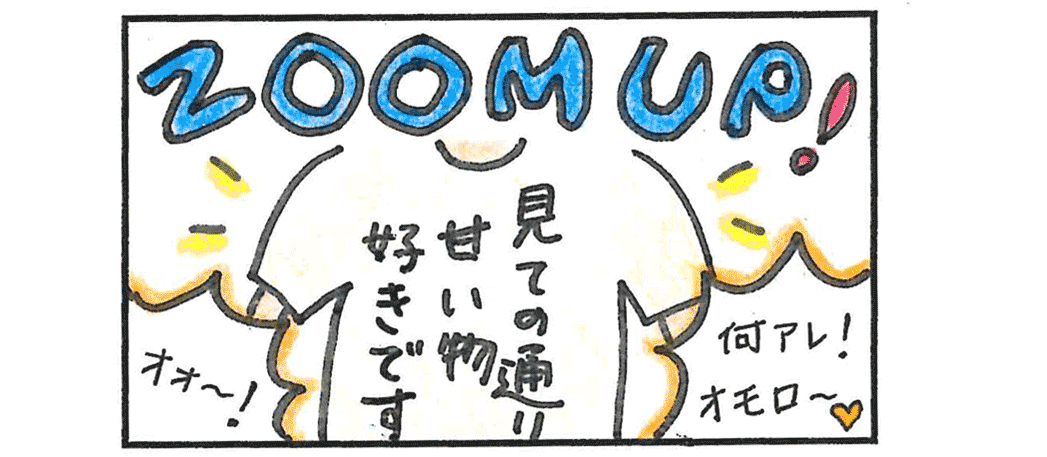 ZOOM UP!
見ての通り
甘い物
好きです
オォ〜!
何アレ!
オモロ〜